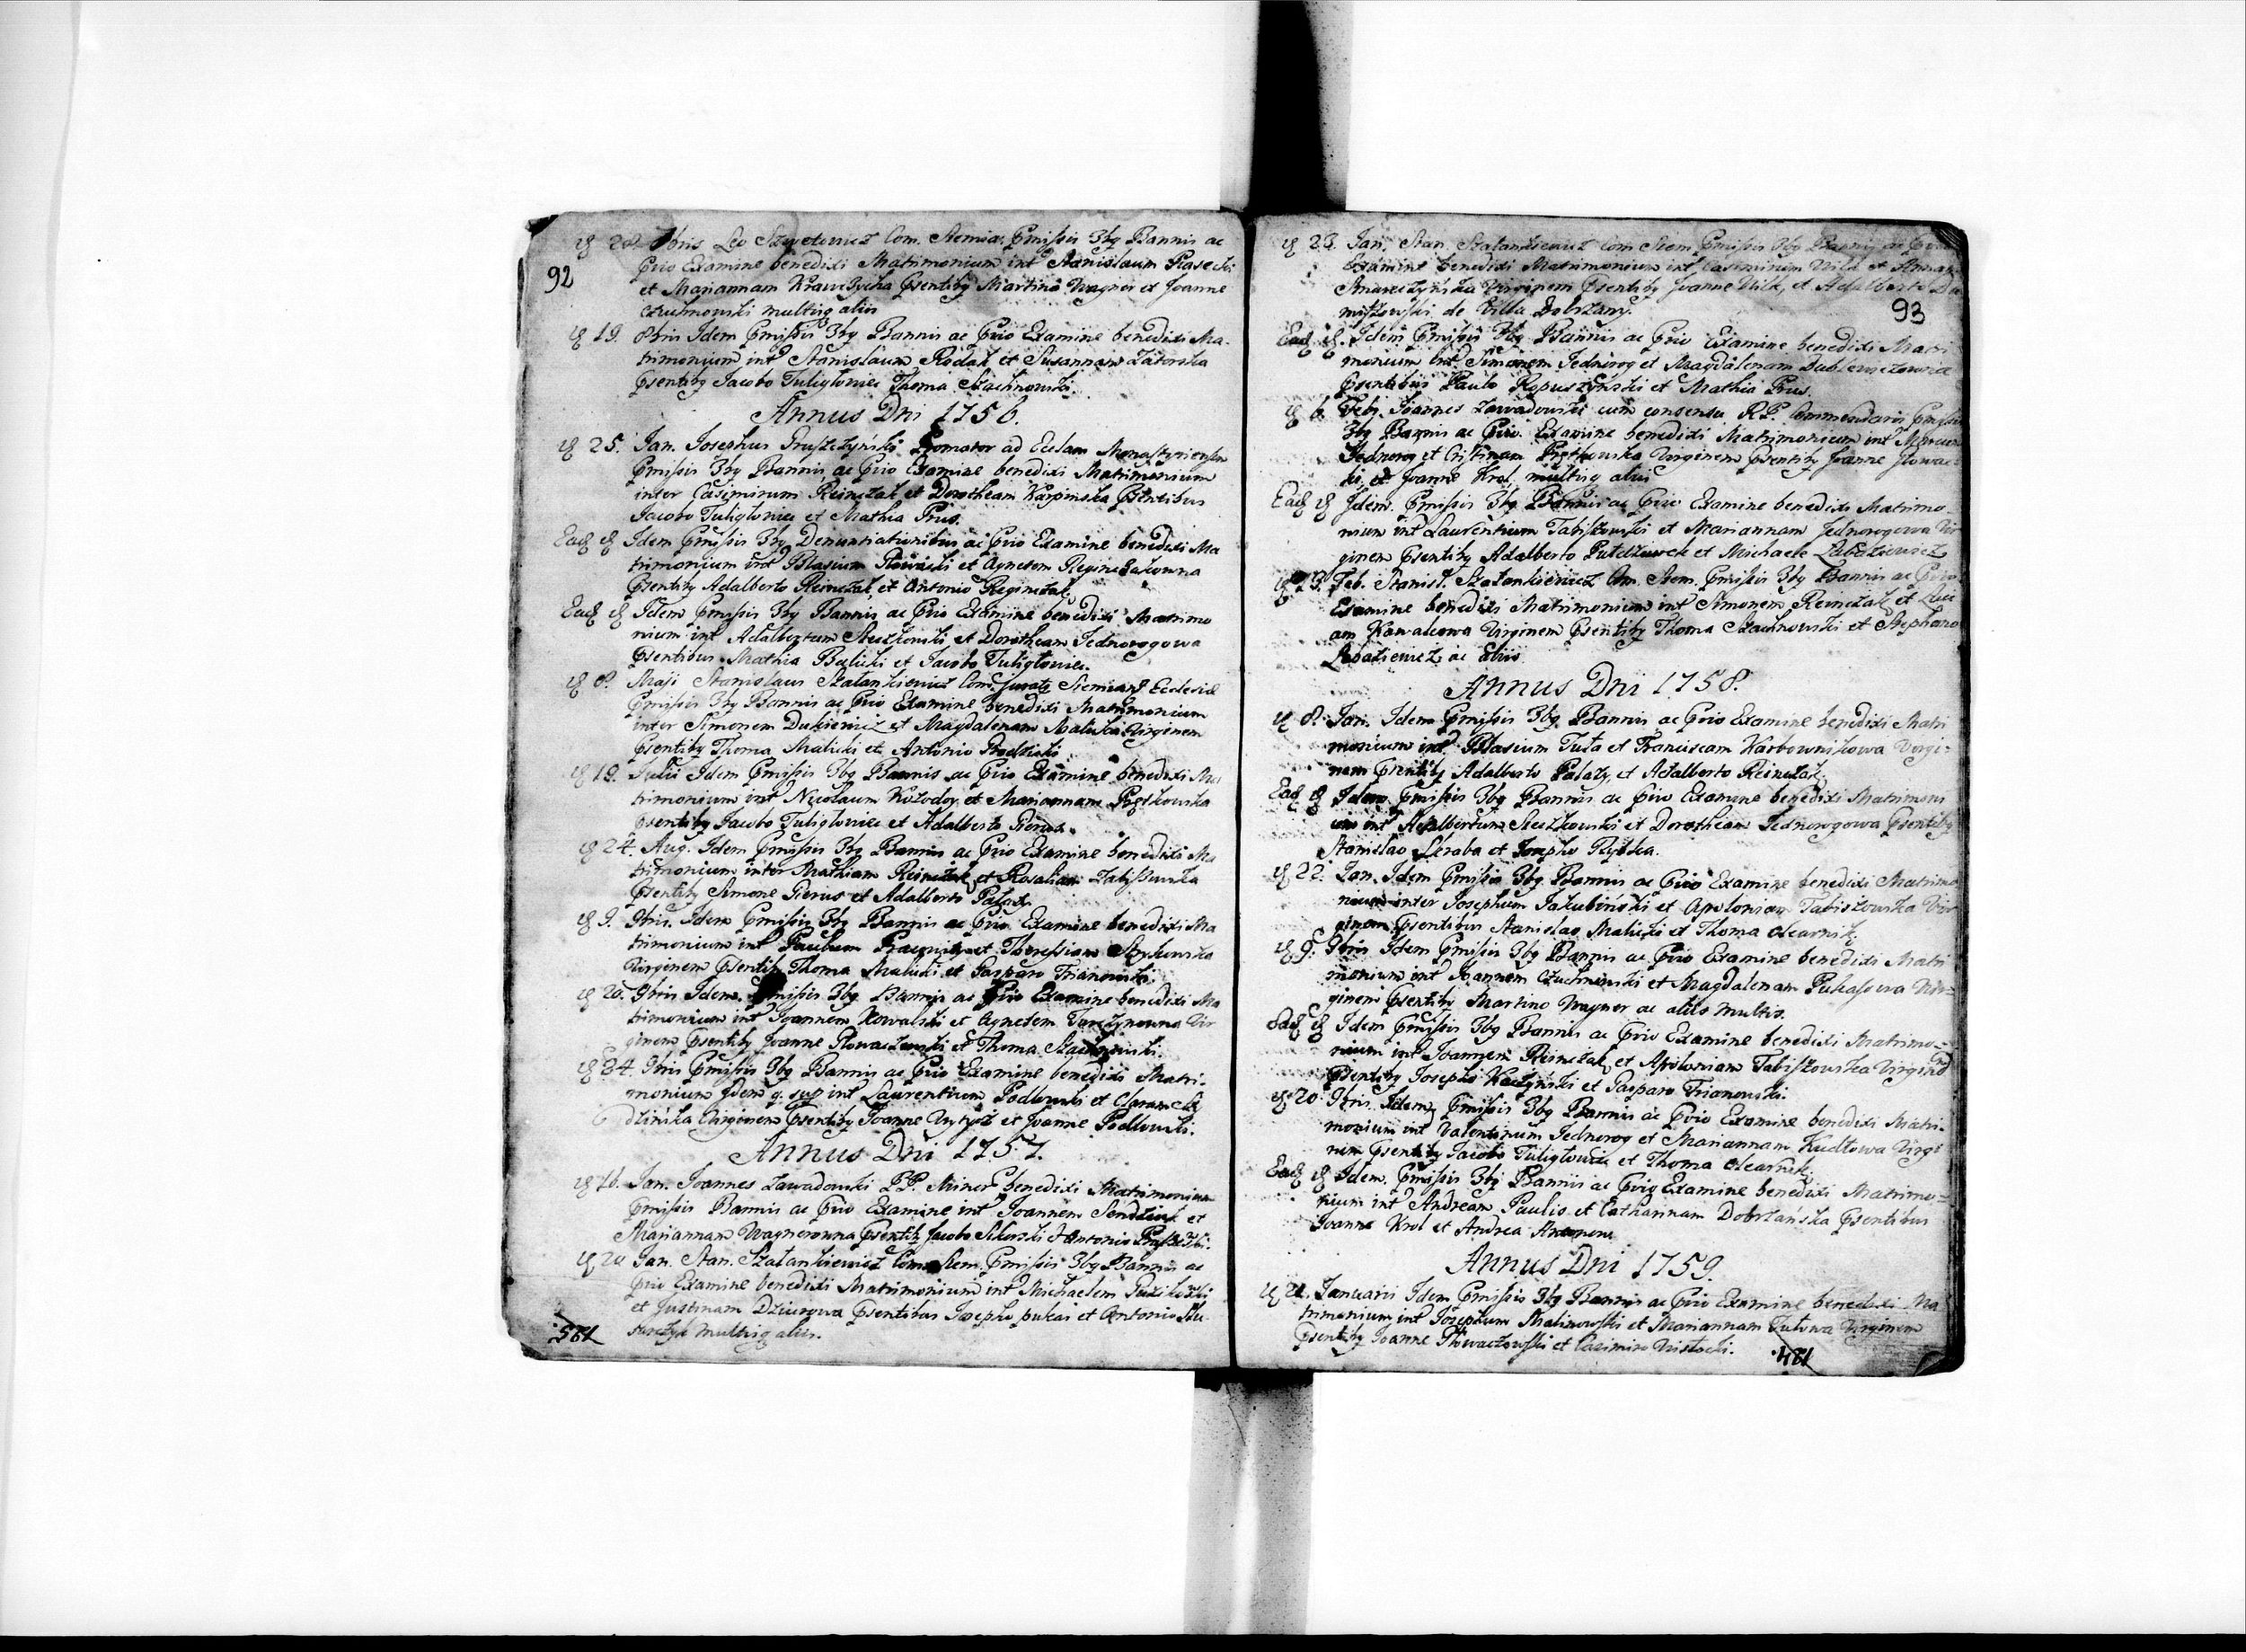 92
20. 7bris Leo Szwetowicz Com. Siemia. Pmissis 3bq Bannis ac
Prio Examine benedixi Matrimonium int Stanislaum Piasecki
et Mariannam Krawczycha Psentibq Martino Wagner et Joanne
Czuchnowski multisq aliis
19. 8bris Idem Pmissis 3bq Bannis ac Prio Examine benedixi Ma-
trimonium int Stanislaum Rodak et Susannam Zatorska
Psentibq Jacobo Tuliglowicz Thoma Stachnowski
Annus Dni 1756.
25. Jan. Josephus Pruszczyński Promotor ad Eclam Monastyriensem
Pmissis 3bq Bannis ac Prio Examine benedixi Matrimonium
inter Casimirum Reinczak et Dorotheam Karpinska Psentibus
Jacobo Tuliglowicz et Mathia Prus.
Ead Idem Pmissis 3bq Denuntiationibus ac Prio Examine benedixi Ma
trimonium int Blasium et Agnetem
Psentibq Adalberto Reinczak et Antonio Reginczak
Ead Idem Pmissis 3bq Bannis ac Prio Examine benedixi Matrimo
nium int Adalbertum Steczkowski et Dorotheam Jednorogowa
Psentibus Mathia Bielicki et Jacobo Tuliglowicz.
8. Maji Stanislaus Szalankiewicz Com. Siemian Ecclesiæ
Pmissis 3bq Bannis ac Prio Examine benedixi Matrimonium
inter Simonem Dukiewicz et Magdalenam Malicka Virginem
Psentibq Thoma Malicki et Antonio Brodzicki
18. Julii Idem Pmissis 3bq Bannis ac Prio Examine benedixi Ma
trimonium int Nicolaum Kozodoy et Mariannam Piątkowska
Psentibq Jacobo Tuliglowicz et Adalberto Pierus.
24. Aug. Idem Pmissis 3bq Bannis ac Prio Examine benedixi Ma
trimonium inter Mathiam Reinczak et Rosaliam Tabiszewska
Psentibq Simone Pierus et Adalberto Palaz.
9. 9bris. Idem Pmissis 3bq Bannis ac Prio Examine benedixi Ma
trimonium int Paulum et Theressiam
Virginem Psentibq Thoma Malicki et Gasparo Trianowski.
20. 9bris Idem. Pmissis 3bq Bannis ac Prio Examine benedixi Ma
trimonium int Joannem Kowalski et Agnetem Vir
ginem Psentibq Joanne Glowaczewski et Thoma Stachnowski.
24. 9bris Pmissis 3bq Bannis ac Prio Examine benedixi Matri-
monium Idem q. sup int Laurentium Podlewski et Claram
Virginem Psentibq Joanne et Joanne Podlewski.
Annus Dni 1757.
16. Jan. Joannes Zawadowski benedixi Matrimonium
Pmissis Bannis ac Prio Examine int Joannem Sendziuk et
Mariannam Wagnerowna Psentibq Jacobo Sikorski et Antonio
20 Jan. Stan. Szalankiewicz Com. Siem. Pmissis 3bq Bannis ac
Prio Examine benedixi Matrimonium int Michaelem
et Justinam Dziurowa Psentibus Josepho pukas et Antonio
multisq aliis.
125.
93
23. Jan. Stan. Szalankiewicz Com Siem. Pmissis 3bq Bannis ac Prio
Examine benedixi Matrimonium int Casimirum Wilk et Annam
Virginem Psentibq Joanne Wilk, et Adalberto
de Villa Dobrzany.
Ead Idem Pmissis 3bq Bannis ac Prio Examine benedixi Matri
monium int Simonem Jednorog et Magdalenam
Psentibus Paulo Kopuszyński et Mathia Prus.
6. Feb. Joannes Zawadowski cum consensu R.P. Commendarii Pmissis
3bq Bannis ac Prio. Examine benedixi Matrimonium int
Jednorog et Cristinam Piątkowska Virginem Psentibq Joanne
et Joanne Krol, multisq aliis
Ead Idem. Pmissis 3bq Bannis ac Prio Examine benedixi Matrimo-
nium int Laurentium Tabiszowski et Mariannam Jednorogowa Vir
ginem Psentibq Adalberto et Michaele
23. Feb. Stanisl. Szalankiewicz Com. Siem. Pmissis 3bq Bannis ac Prio
Examine benedixi Matrimonium int Simonem Reinczak et Luci
am Kowalcowa Virginem Psentibq Thoma Stachnowski et Stephano
ac Aliis
Annus Dni 1758.
8. Jan. Idem Pmissis 3bq Bannis ac Prio Examine benedixi Matri
monium int Blasium Tuta et Franciscam Karbownikowa Virgi-
nem Psentibq Adalberto Palazy et Adalberto Reinczak.
Ead Idem. Pmissis 3bq Bannis ac Prio Examine benedixi Matrimoni
um int Adalbertum Steczkowski et Dorotheam Jednorogowa Psentibq
Stanislao et Josepho Rybka.
22. Jan. Idem Pmissis 3bq Bannis ac Prio Examine benedixi Matrimo
nium inter Josephum Jakubiński et Apoloniam Tabiszowska Vir
ginem Psentibus Stanislao Malicki et Thoma Olearnik.
9. 9bris Idem Pmissis 3bq Bannis ac Prio Examine benedixi Matri
monium int Joannem Czuchnowski et Magdalenam Pukasowa Vir-
ginem Psentibq Martino Wagner ac aliis multis.
Ead Idem Pmissis 3bq Bannis ac Prio Examine benedixi Matrimo-
nium int Joannem Reinczak et Apoloniam Tabiszowska Virgine
Psentibq Josepho Kaczyński et Gasparo Trianowski.
20. 9bris. Idem Pmissis 3bq Bannis ac Prio Examine benedixi Matri-
monium int Valentinum Jednorog et Mariannam Kudłowa Virgi
nem Psentibq Jacobo Tuliglowicz et Thoma Olearnik.
Ead Idem. Pmissis 3bq Bannis ac Prio Examine benedixi Matrimo-
nium int Andream Paulis et Catharinam Dobrzańska Psentibus
Joanne Krol et Andrea
Annus Dni 1759.
21. Januarii Idem Pmissis 3bq Bannis ac Prio Examine benedixi Ma
trimonium int Josephum Malinowski et Mariannam Tutowa Virginem
Psentibq Joanne Głowaczowski et Casimiro Wisłocki.
124.